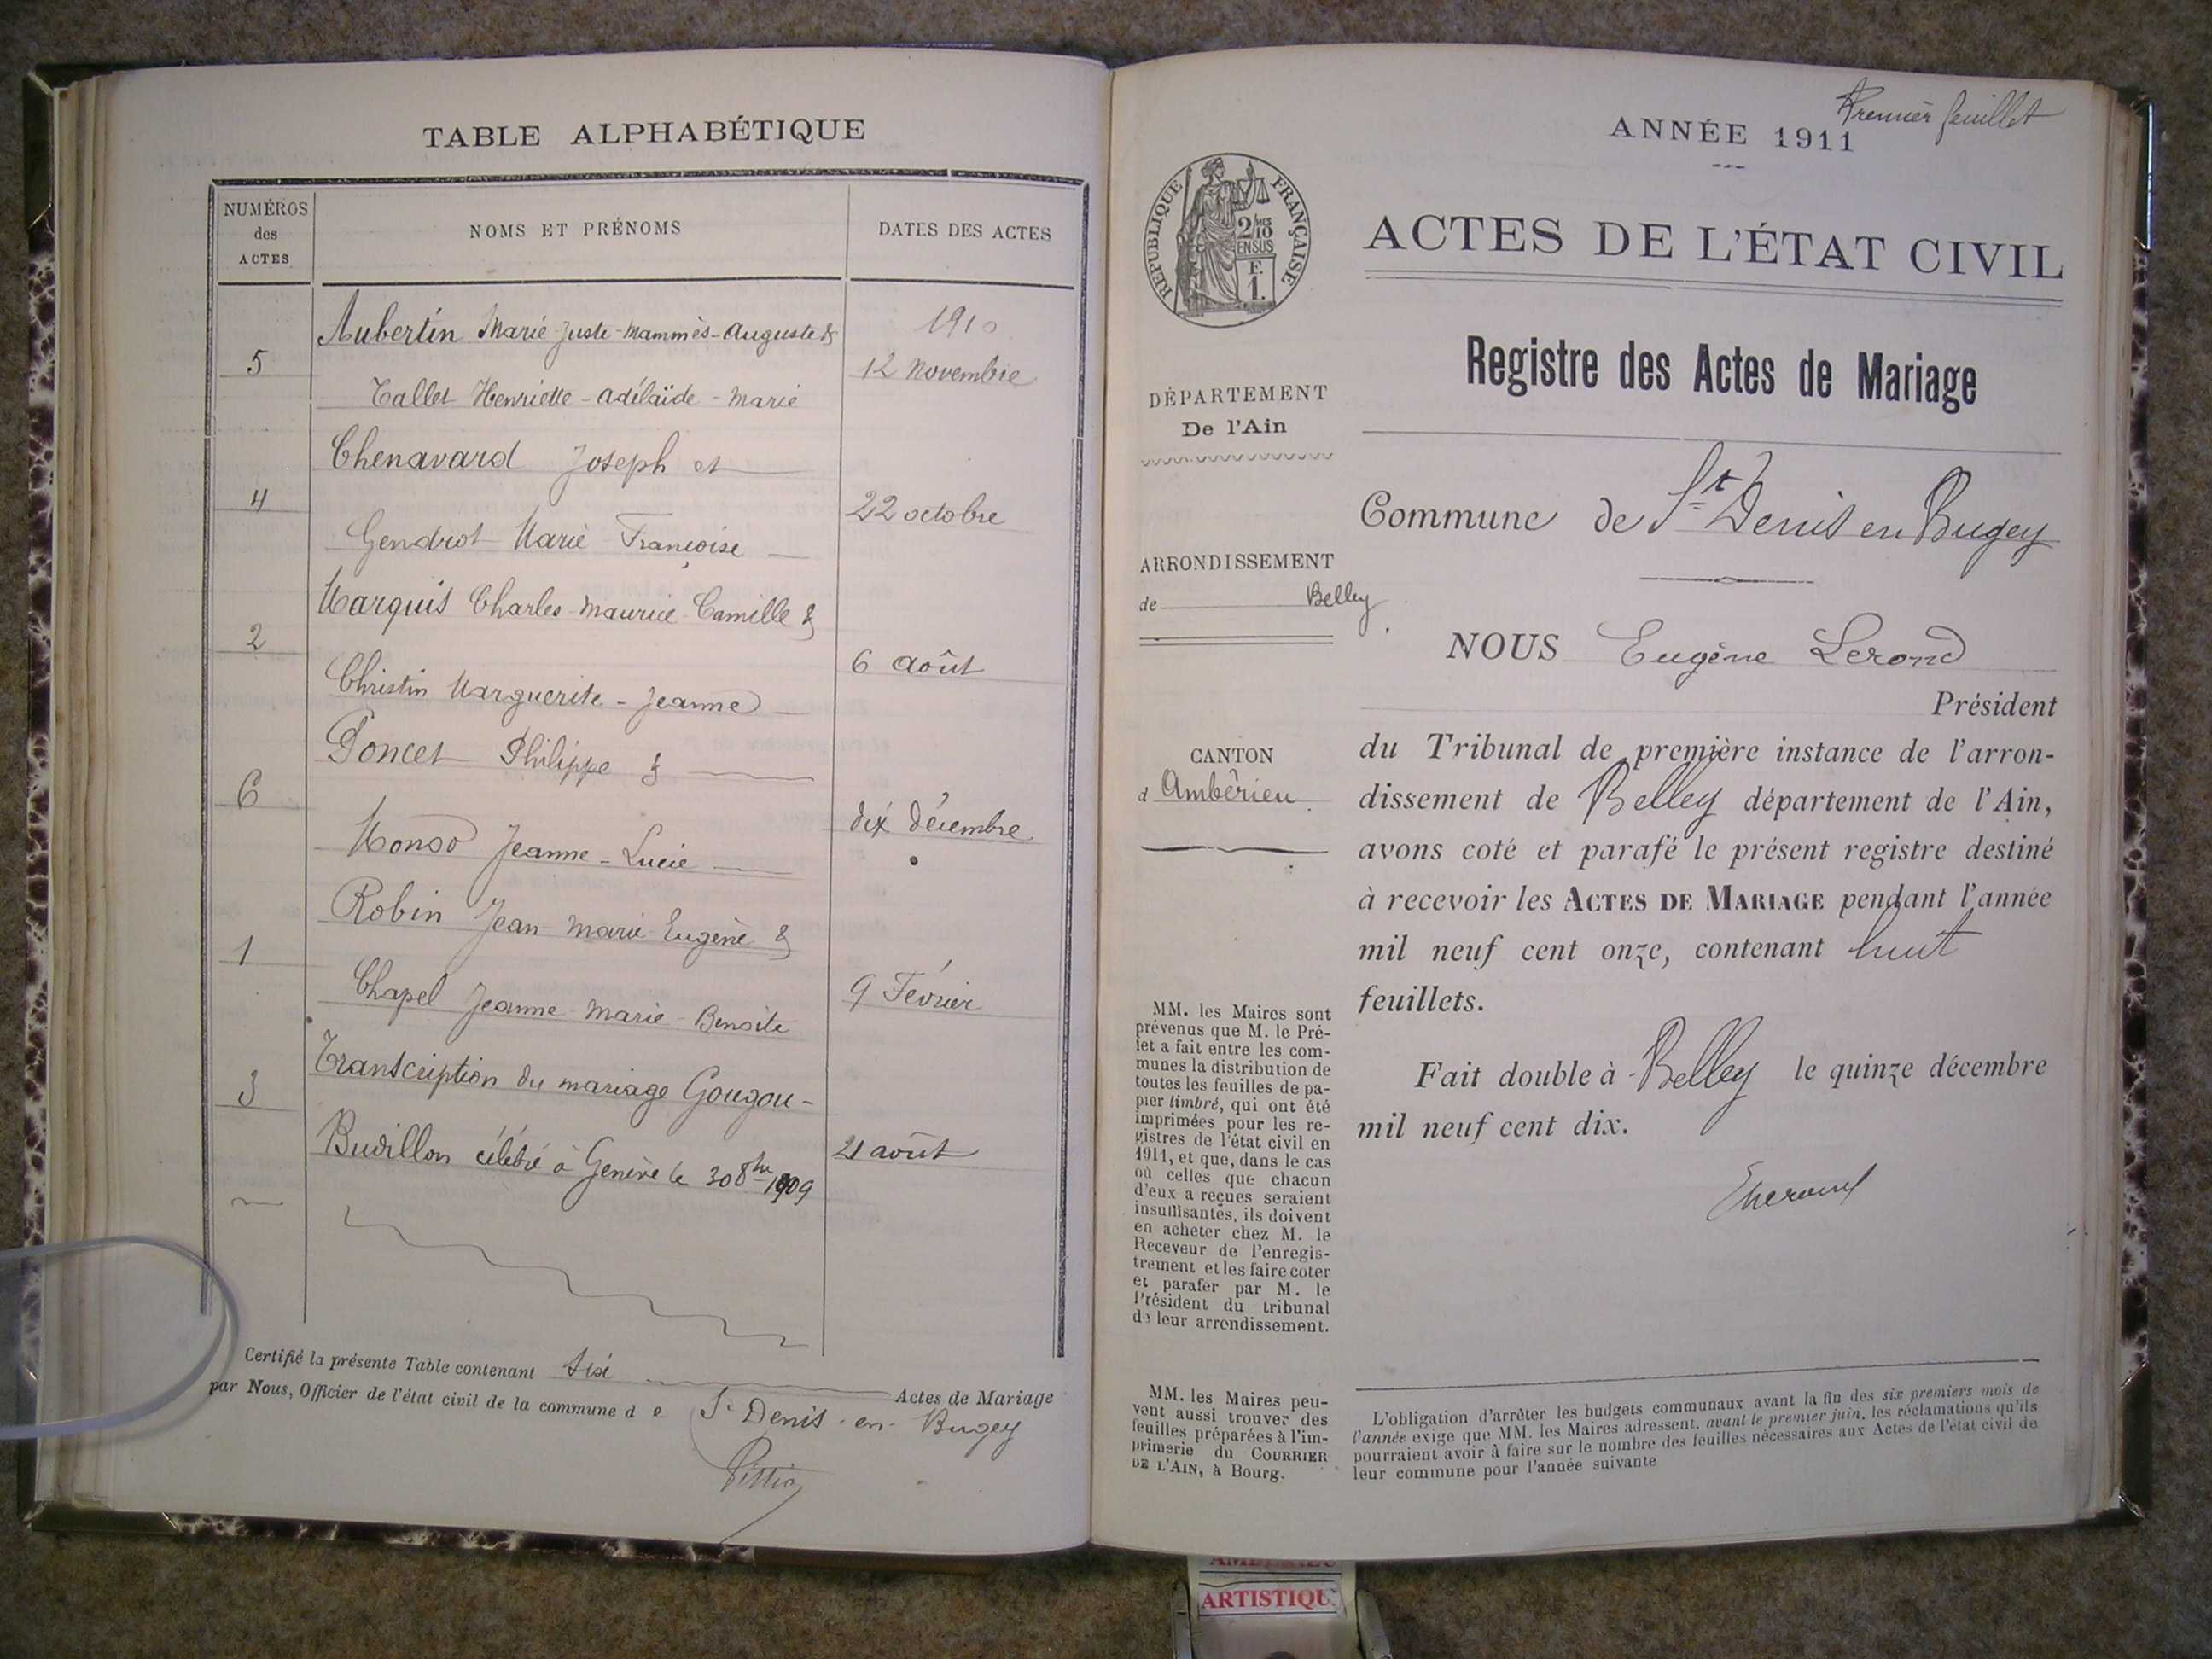 TABLE ALPHABÉTIQUE
NUMÉROS
des
ACTES
NOMS ET PRÉNOMS
DATES DES ACTES
Aubertin Marie-Juste-Mammès-Auguste &
1910
5
12 Novembre
Tallet Henriette-adélaïde-Marie
Chenavard Joseph et
4
22 octobre
Gendrot Marie Françoise
Marquis Charles-Maurice-Camille &
2
6 août
Christin Marguerite-Jeanne
Poncet Philippe &
6
dix décembre
Jeanne-Lucie
Robin Jean Marie Eugène &
1
9 Février
Chapel Jeanne Marie Benoite
Transcription du mariage Gougou-
3
Buvillon célébré à Genève le 30 8bre 1909
21 août
Certifié la présente Table contenant six
Actes de Mariage
par Nous, Officier de l'état civil de la commune d e St Denis-en-Bugey
Premier feuillet
ANNÉE 1911
RÉPUBLIQUE FRANÇAISE
2/10
EN SUS
F.
1.
ACTES DE L'ÉTAT CIVIL
Registre des Actes de Mariage
DÉPARTEMENT
De l'Ain
Commune de St Denis en Bugey
ARRONDISSEMENT
de Belley
NOUS Eugène Lerond
Président
CANTON
d Ambérieu
du Tribunal de première instance de l'arron-
dissement de Belley département de l'Ain,
avons coté et parafé le présent registre destiné
à recevoir les ACTES DE MARIAGE pendant l'année
mil neuf cent onze, contenant huit
feuillets.
Fait double à Belley le quinze décembre
mil neuf cent dix.
MM. les Maires sont
prévenus que M. le Pré-
fet a fait entre les com-
munes la distribution de
toutes les feuilles de pa-
pier timbré, qui ont été
imprimées pour les re-
gistres de l'état civil en
1911, et que, dans le cas
où celles que chacun
d'eux a reçues seraient
insuffisantes, ils doivent
en acheter chez M. le
Receveur de l'enregis-
trement et les faire coter
et parafer par M. le
Président du tribunal
de leur arrondissement.
MM. les Maires peu-
vent aussi trouver des
feuilles préparées à l'im-
primerie du COURRIER
DE L'AIN, à Bourg.
L'obligation d'arrêter les budgets communaux avant la fin des six premiers mois de
l'année exige que MM. les Maires adressent, avant le premier juin, les réclamations qu'ils
pourraient avoir à faire sur le nombre des feuilles nécessaires aux Actes de l'état civil de
leur commune pour l'année suivante
ARTISTIQU